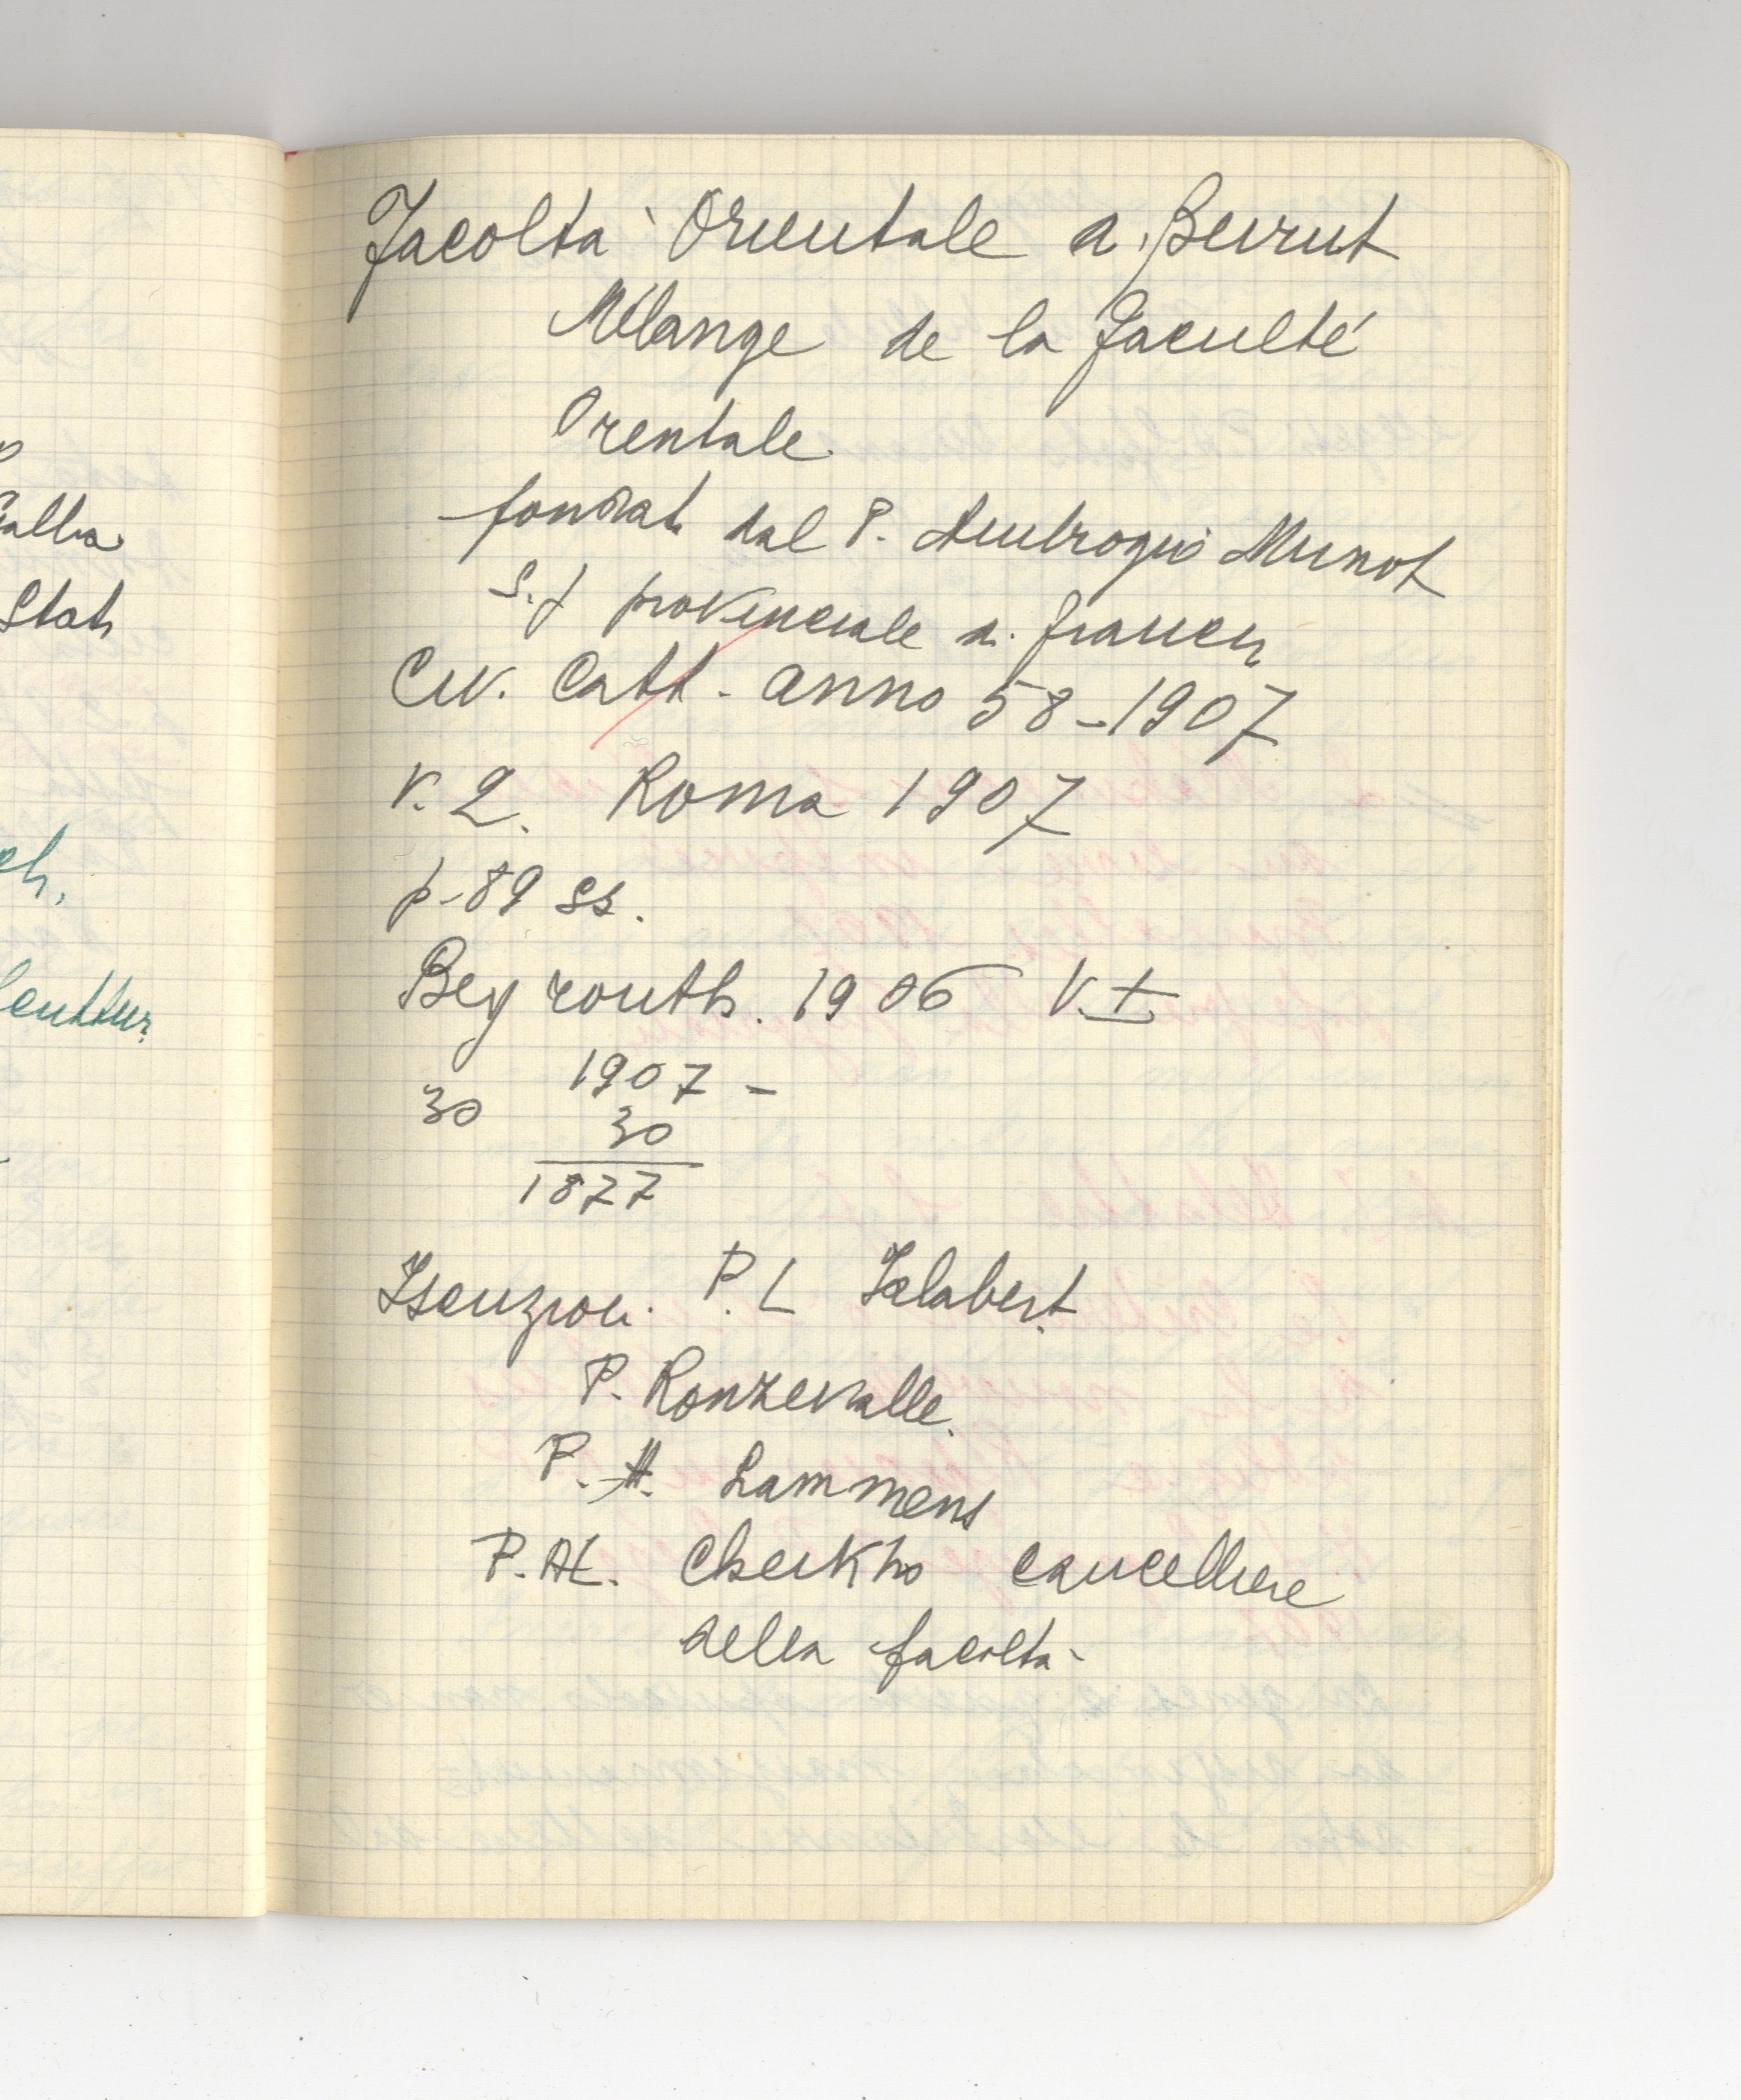 Facoltà Orientale a Beirut
Mélange de la Faculté
Orentale
fondat dal P. Ambrogio Munot
S.J provinciale di
Civ. Catt. anno 58-1907
V. 2. Roma 1907
p-89 ss.
Beyrouth. 1906 V. I
1907 -
30 30
1877
Iscrizioni P. L Jalabert
P. Ronzevalle
P. H. Lammens
P. AL. Cheikho cancelliere
della facolta
alba
Stati